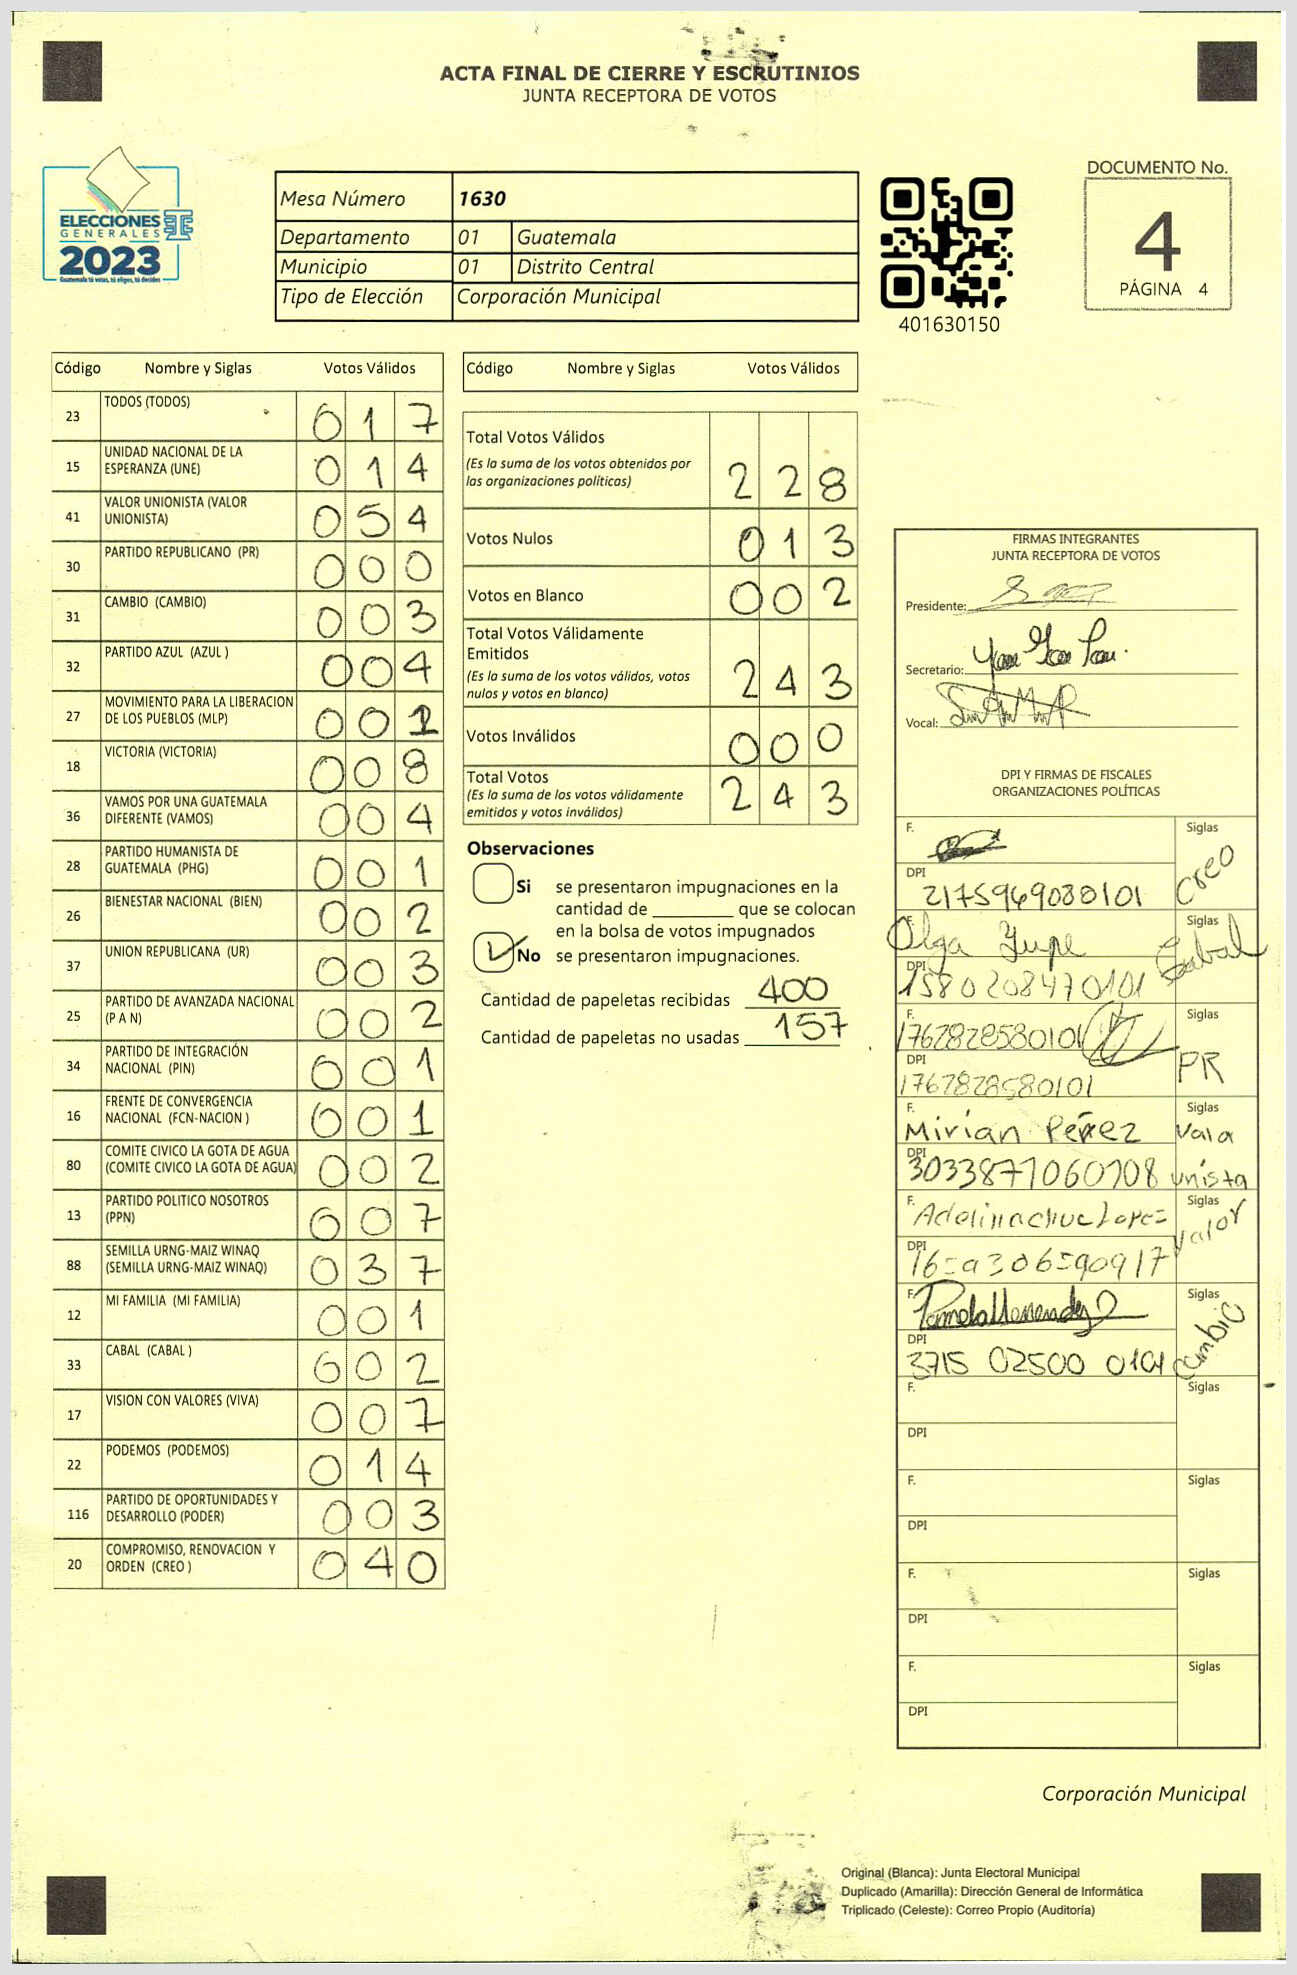 ACTA FINAL DE CIERRE Y ESCRUTINIOS
JUNTA RECEPTORA DE VOTOS
ELECCIONES
GENERALES
2023
Guatemala tú votas, tú eliges, tú decides
Mesa Número 1630
Departamento 01 Guatemala
Municipio 01 Distrito Central
Tipo de Elección Corporación Municipal
401630150
DOCUMENTO No.
4
PÁGINA 4
Código Nombre y Siglas Votos Válidos
23 TODOS (TODOS) 0 1 7
15 UNIDAD NACIONAL DE LA ESPERANZA (UNE) 0 1 4
41 VALOR UNIONISTA (VALOR UNIONISTA) 0 5 4
30 PARTIDO REPUBLICANO (PR) 0 0 0
31 CAMBIO (CAMBIO) 0 0 3
32 PARTIDO AZUL (AZUL ) 0 0 4
27 MOVIMIENTO PARA LA LIBERACION DE LOS PUEBLOS (MLP) 0 0 1
18 VICTORIA (VICTORIA) 0 0 8
36 VAMOS POR UNA GUATEMALA DIFERENTE (VAMOS) 0 0 4
28 PARTIDO HUMANISTA DE GUATEMALA (PHG) 0 0 1
26 BIENESTAR NACIONAL (BIEN) 0 0 2
37 UNION REPUBLICANA (UR) 0 0 3
25 PARTIDO DE AVANZADA NACIONAL (P A N) 0 0 2
34 PARTIDO DE INTEGRACIÓN NACIONAL (PIN) 0 0 1
16 FRENTE DE CONVERGENCIA NACIONAL (FCN-NACION ) 0 0 1
80 COMITE CIVICO LA GOTA DE AGUA (COMITE CIVICO LA GOTA DE AGUA) 0 0 2
13 PARTIDO POLITICO NOSOTROS (PPN) 0 0 7
88 SEMILLA URNG-MAIZ WINAQ (SEMILLA URNG-MAIZ WINAQ) 0 3 7
12 MI FAMILIA (MI FAMILIA) 0 0 1
33 CABAL (CABAL ) 0 0 2
17 VISION CON VALORES (VIVA) 0 0 7
22 PODEMOS (PODEMOS) 0 1 4
116 PARTIDO DE OPORTUNIDADES Y DESARROLLO (PODER) 0 0 3
20 COMPROMISO, RENOVACION Y ORDEN (CREO ) 0 4 0
Código Nombre y Siglas Votos Válidos
Total Votos Válidos 2 2 8
(Es la suma de los votos obtenidos por
las organizaciones políticas)
Votos Nulos 0 1 3
Votos en Blanco 0 0 2
Total Votos Válidamente
Emitidos 2 4 3
(Es la suma de los votos válidos, votos
nulos y votos en blanco)
Votos Inválidos 0 0 0
Total Votos 2 4 3
(Es la suma de los votos válidamente
emitidos y votos inválidos)
Observaciones
Si se presentaron impugnaciones en la
cantidad de ________ que se colocan
en la bolsa de votos impugnados
No se presentaron impugnaciones.
Cantidad de papeletas recibidas 400
Cantidad de papeletas no usadas 157
FIRMAS INTEGRANTES
JUNTA RECEPTORA DE VOTOS
Presidente:
Secretario:
Vocal:
DPI Y FIRMAS DE FISCALES
ORGANIZACIONES POLÍTICAS
F. Siglas
Creo
DPI 2175969080101
F. Olga Siglas Cabal
DPI 1580208470101
F. 1762828580101 Siglas
PR
DPI 1762828580101
F. Mirian Pérez Siglas Vala
DPI 3033871060108 unista
F. Siglas Valor
DPI
F. Siglas
Cambio
DPI 3715 02500 0101
F. Siglas
DPI
F. Siglas
DPI
F. Siglas
DPI
F. Siglas
DPI
Corporación Municipal
Original (Blanca): Junta Electoral Municipal
Duplicado (Amarilla): Dirección General de Informática
Triplicado (Celeste): Correo Propio (Auditoría)